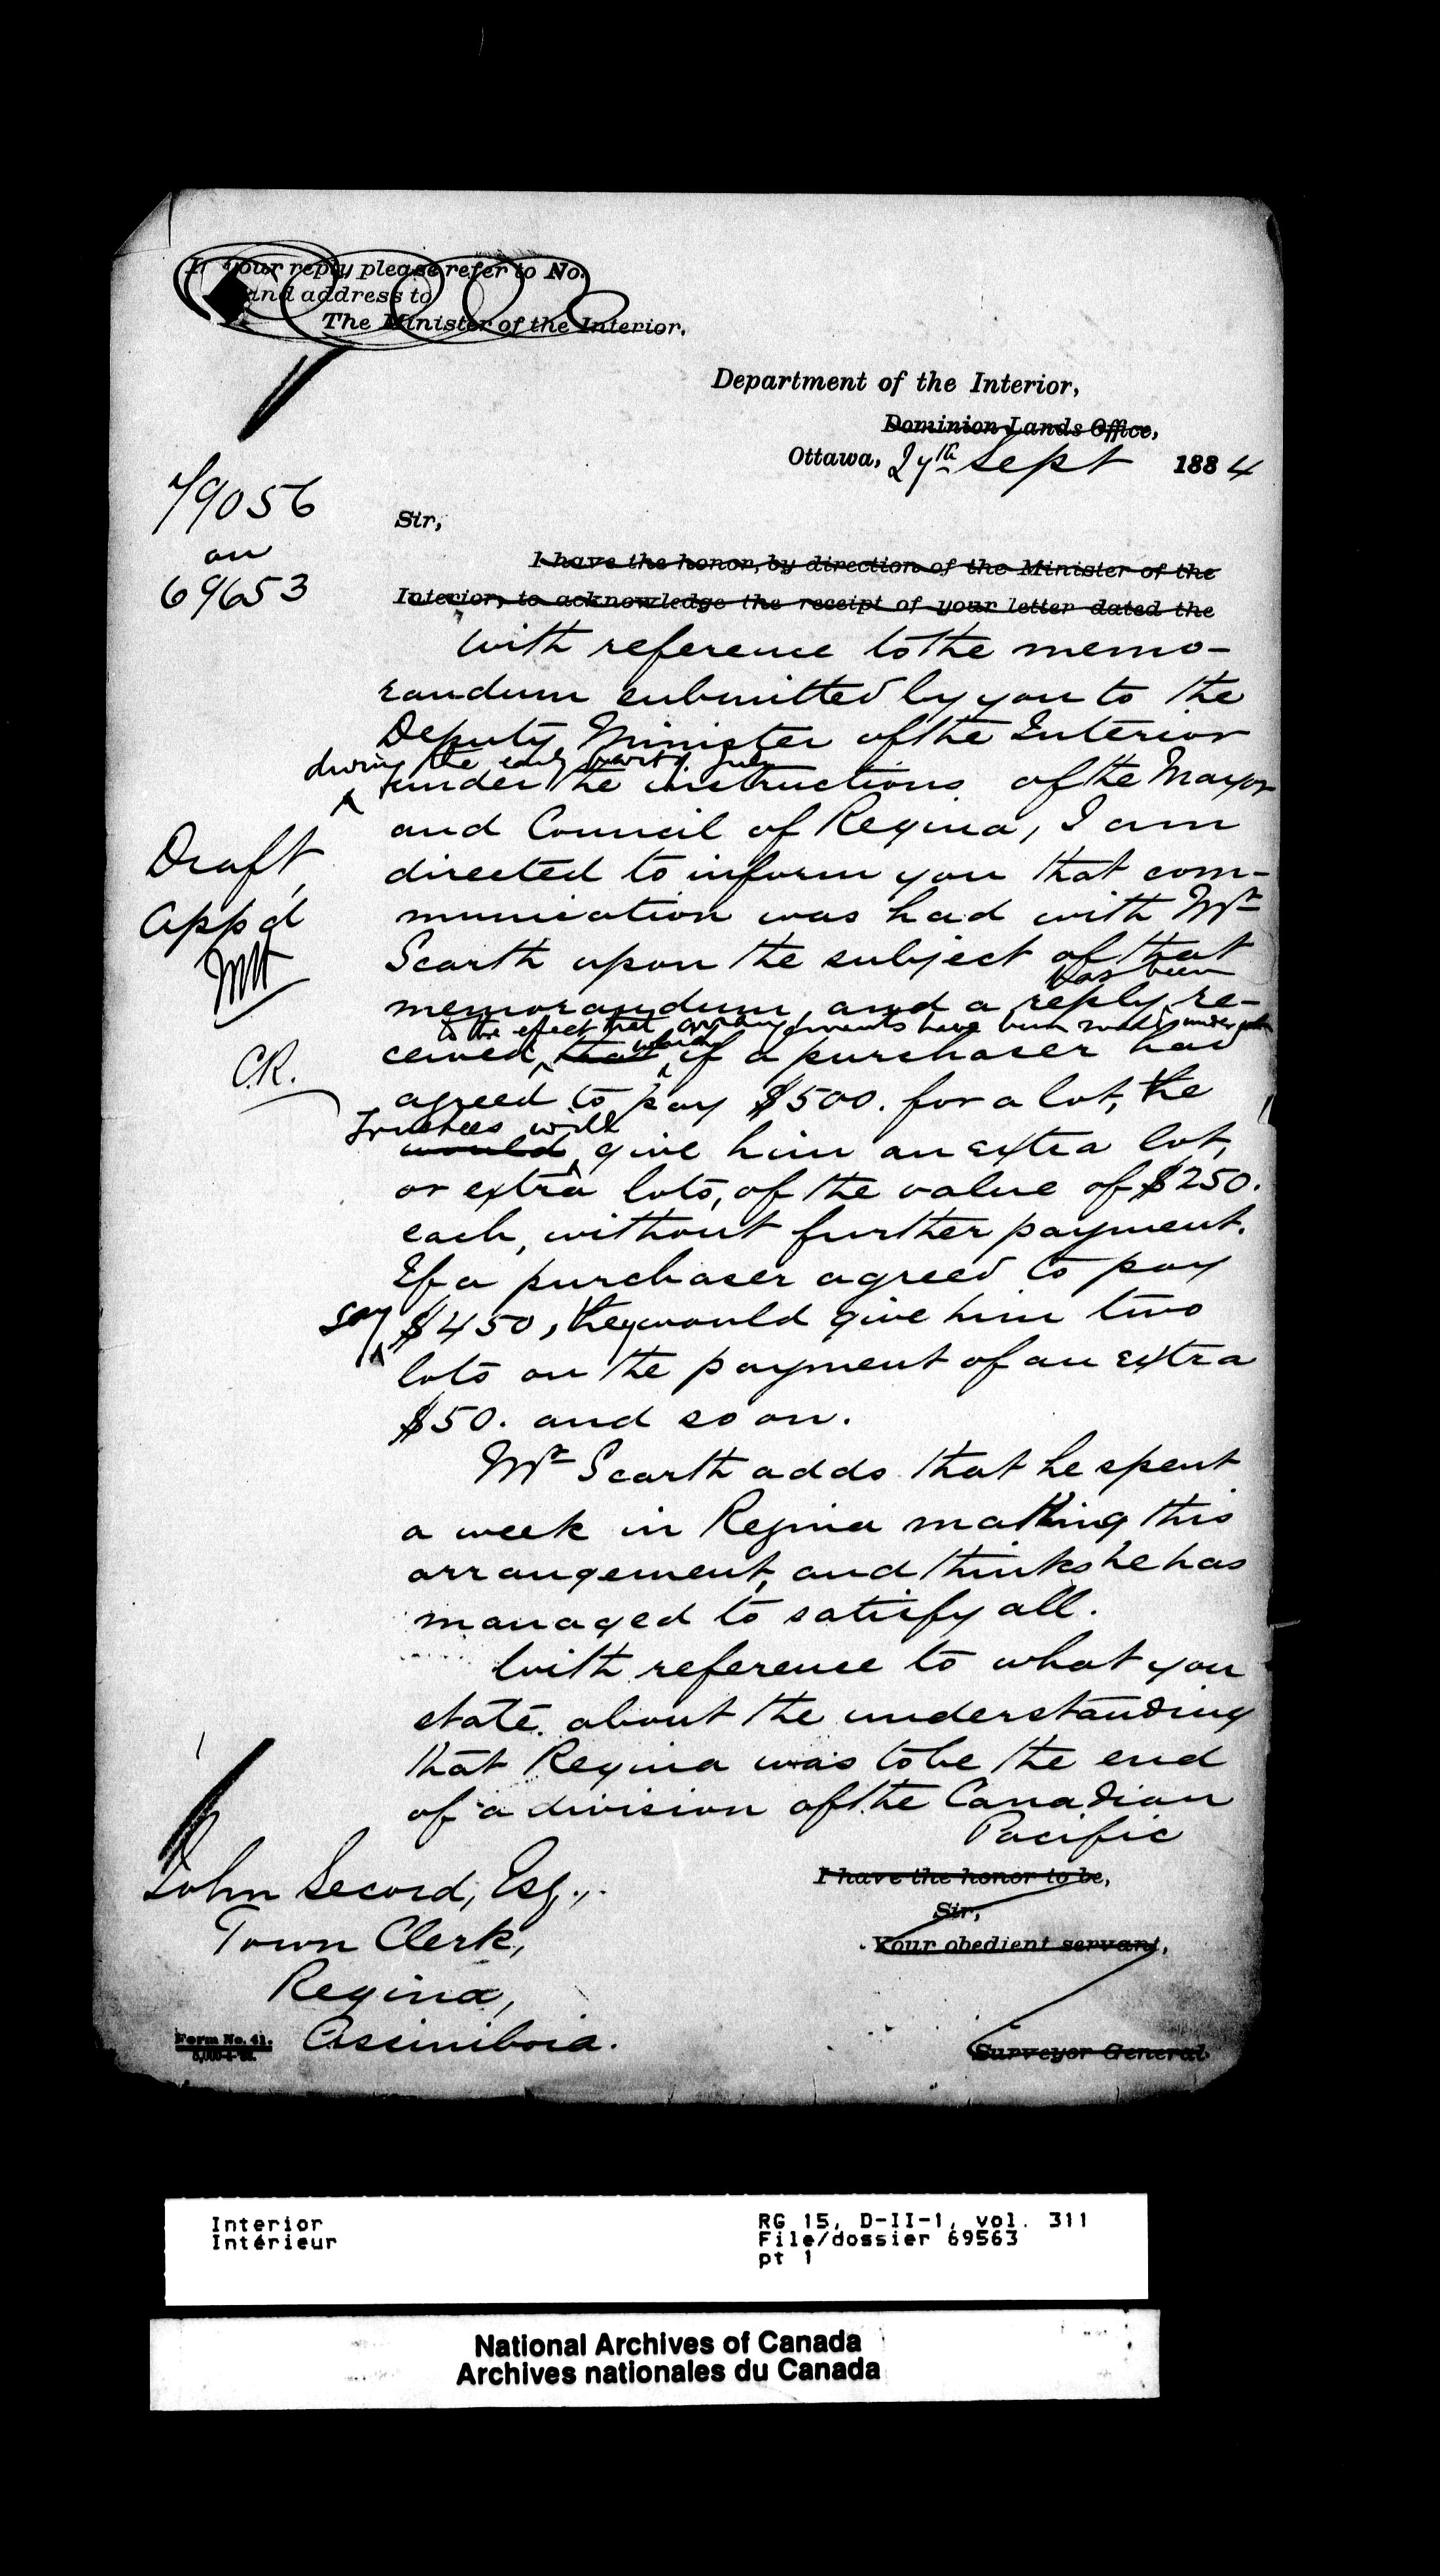 In your reply please refer to No.
and address to
The Minister of the Interior.
Department of the Interior,
Dominion Lands Office,
Ottawa, 27th Sept 1884
79056
on
69653
Sir,
I have the honor, by direction of the Minister of the
Interior, to acknowledge the receipt of your letter dated the
With reference to the memo-
randum submitted by you to the
Deputy Minister of the Interior
during the early part of July
under the instructions of the Mayor
and Council of Regina, I am
directed to inform you that com-
munication was had with Mr
Scarth upon the subject of that
has been
memorandum, and a reply re-
to the effect that arrangements have been made under
which
ceived, that if a purchaser had
agreed to pay $500. for a lot, the
Trustees will
would give him an extra lot,
or extra lots, of the value of $250.
each, without further payment.
If a purchaser agreed to pay
say $450, they would give him two
lots on the payment of an extra
$50. and so on.
Mr Scarth adds that he spent
a week in Regina making this
arrangement, and thinks he has
managed to satisfy all.
With reference to what you
state about the understanding
that Regina was to be the end
of a division of the Canadian
Pacific
Draft
App'd
C.R.
I have the honor to be,
Sir,
Your obedient servant,
Surveyor General
John Secord, Esq.,
Town Clerk,
Regina,
Assiniboia.
Form No. 41.
Interior
Intérieur
RG 15, D-II-1, vol. 311
File/dossier 69563
pt 1
National Archives of Canada
Archives nationales du Canada